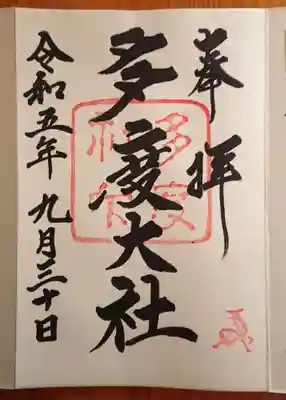 奉拝
多度大社
令和五年 九月三十日
多度